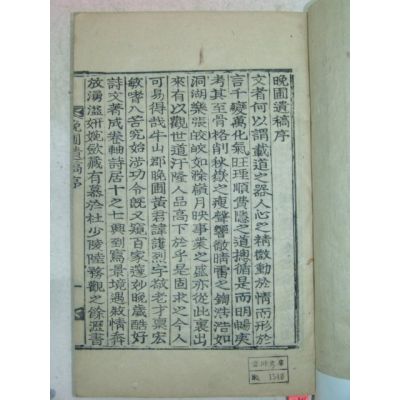 晩圃遺稿序
文者何以謂載道之器人心之精微動於情而形於
言千變萬化氣旺理順費隱之道摠循是而明暢庚
考其至骨格削秋嶽瘦聲響徹晴雷之鍧浩浩如
洞湖樂張皎皎如嶺月映事業之盛亦從此裏出
來有以觀世道汙隆人品高下於乎是固求之今人
可易得哉牛山郡晩圃黃君諱 烈字敬老才禀宏
敏嗜八百家功令旣又窺百家邃妙晩歲酷好
詩文著成卷軸詩居十之七興到寫景境遇敍情奔
放湧溢姸婉斂藏有慕於杜少陵陸務觀之餘瀝書
晩圃遺稿序
一